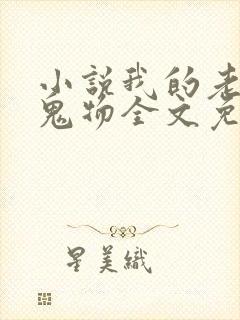 小说我的老
鬼物全文免
星美織